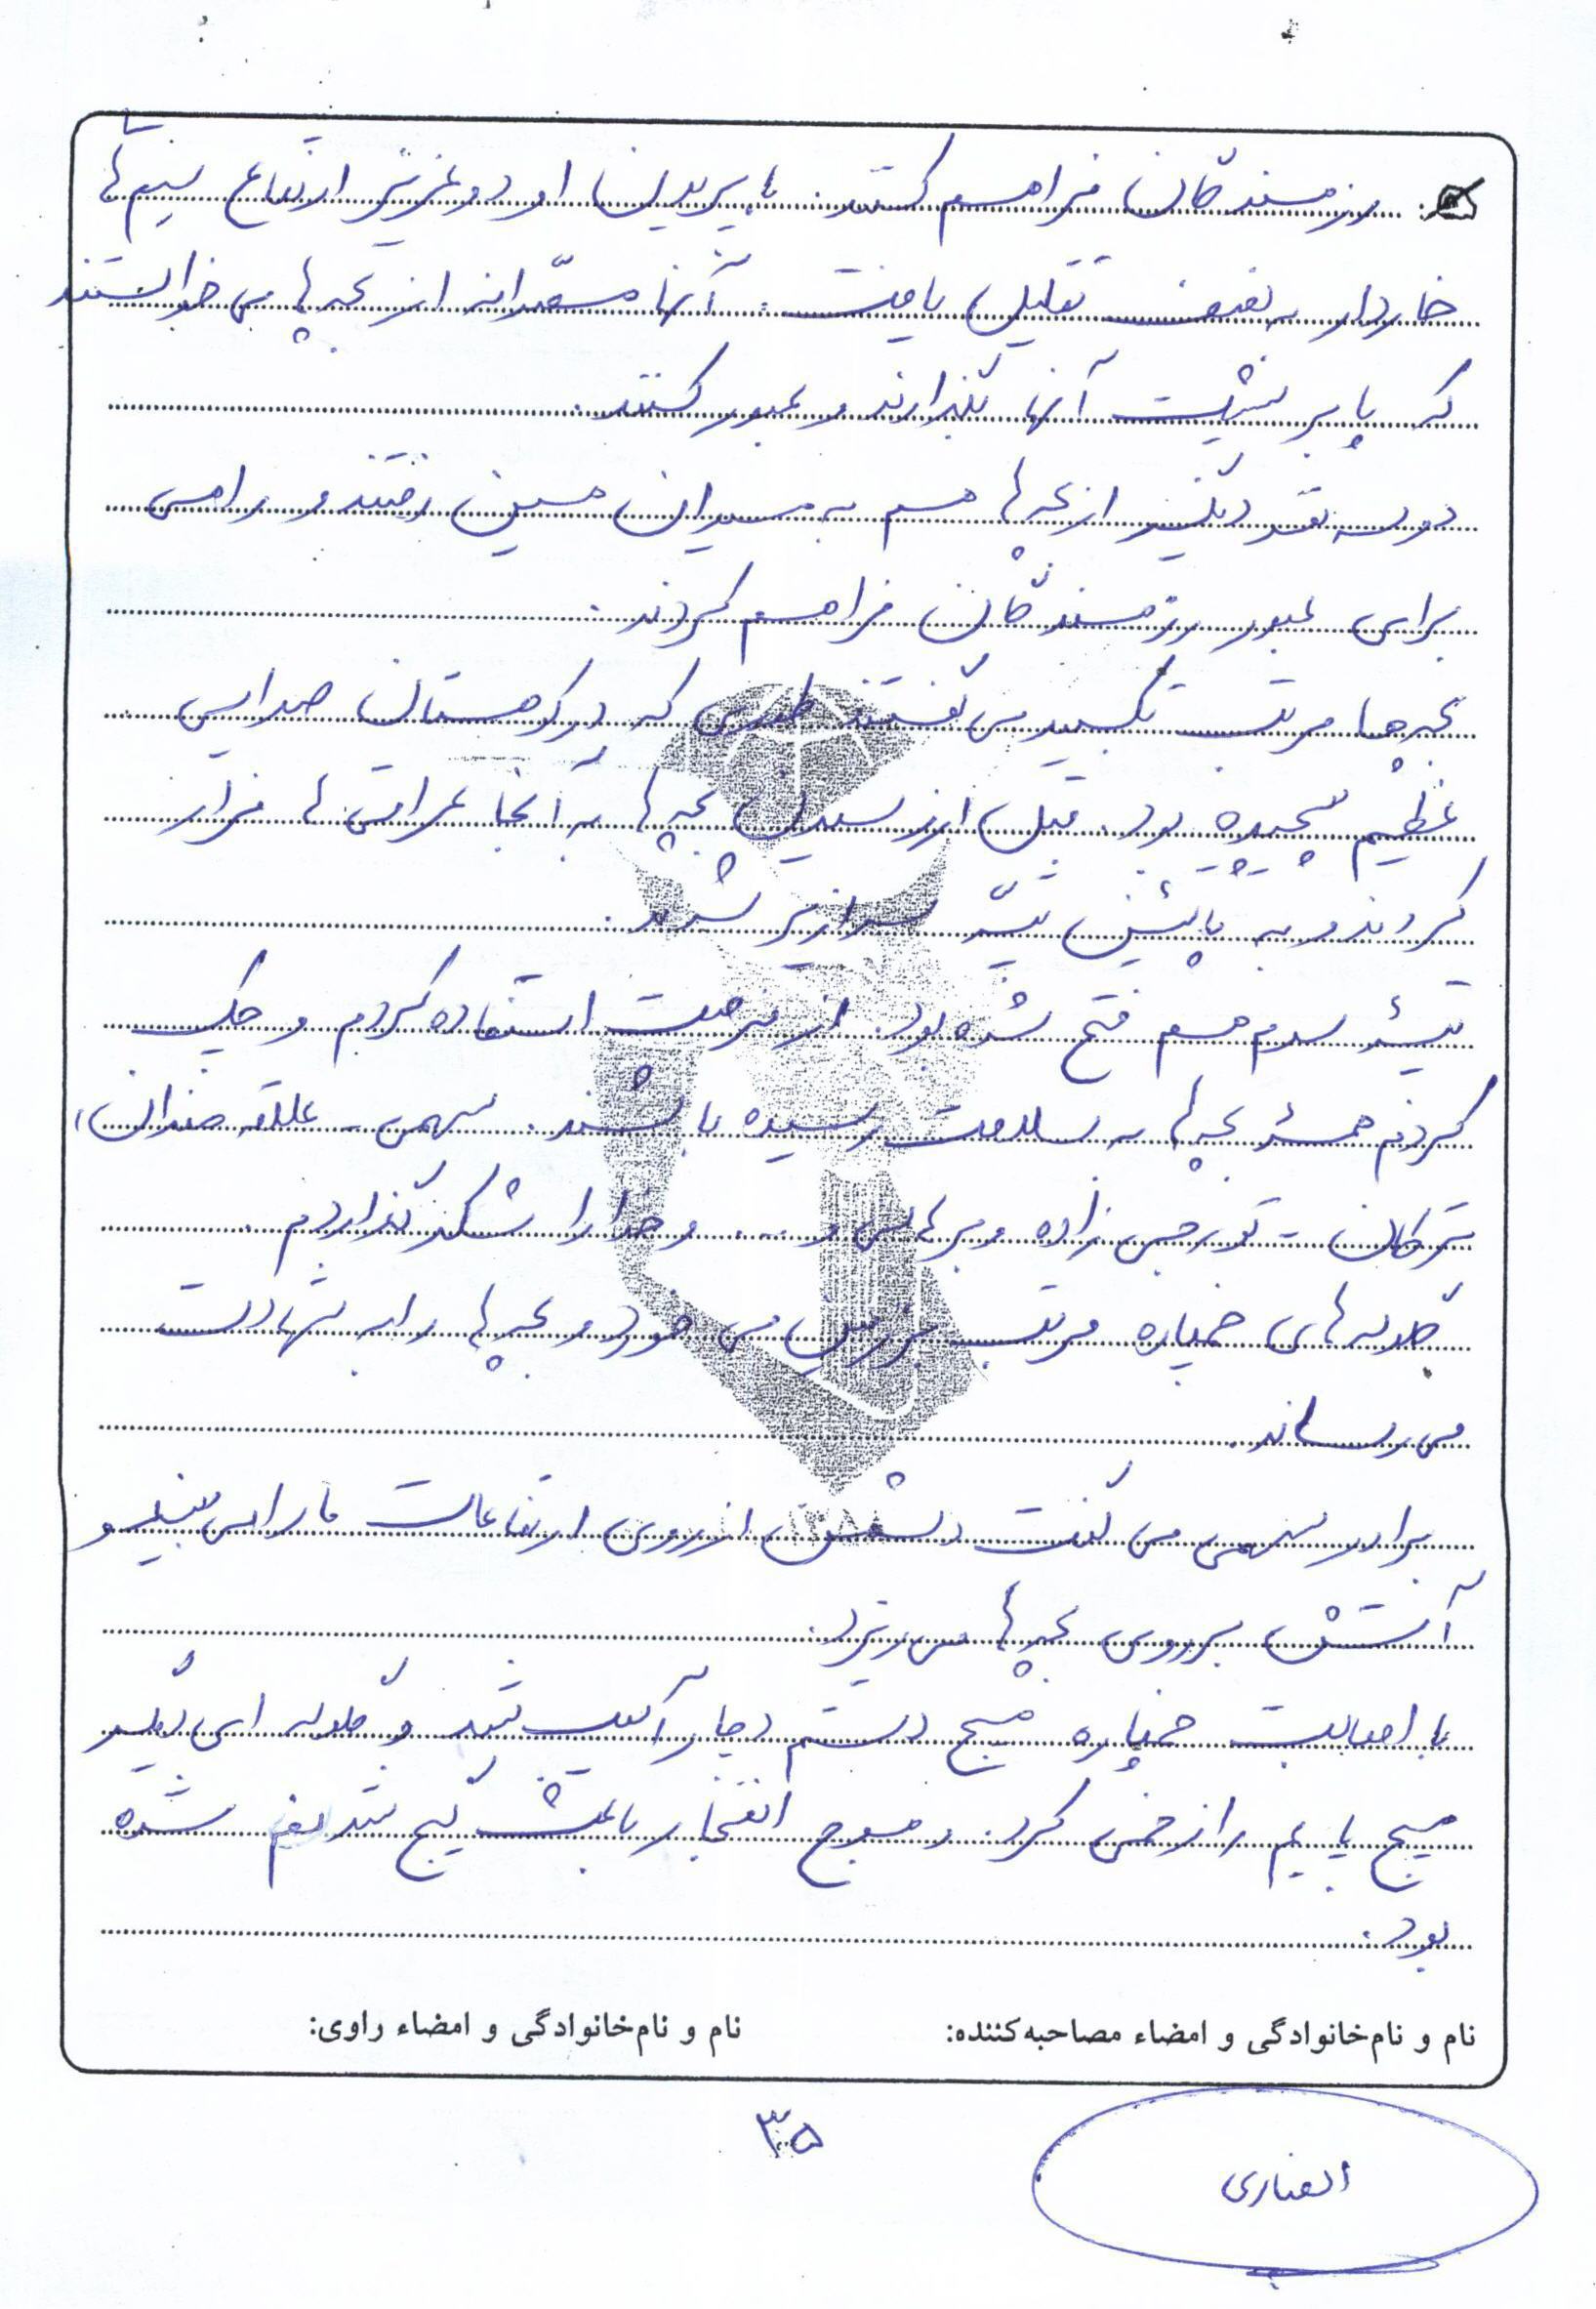 رزمندگان فراهم کنند. با پریدن او دو عزیز ارتفاع سیم‌ها
خاردار به نصف تقلیل یافت. آنها مصرانه از بچه‌ها می‌خواستند
که پا بر پشت آنها بگذارند و عبور کنند.
دو سه نفر دیگر از بچه‌ها هم به میدان مین رفتند و راهی
برای عبور رزمندگان فراهم کردند.
بچه‌ها مرتب تکبیر می‌گفتند طوری که در کوهستان صدایی
عظیم پیچیده بود. قبل از رسیدن بچه‌ها به آنجا عراقی‌ها فرار
کردند و به پائین تپّه سرازیر شدند.
تپهٔ سوم هم فتح شده بود. از فرصت استفاده کردم و چک
کردم همهٔ بچه‌ها به سلامت رسیده باشند. بهمن - علاقه‌مندان،
ترکان - تورجی‌زاده و و .... و خدا را شکر گذاردم.
گلوله‌های خمپاره مرتب بزمین می‌خورد و بچه‌ها را به شهادت
می‌رساند.
برادر بهمن می‌گفت دشمن از روی ارتفاعات ما را می‌بیند و
آتش بر روی بچه‌ها می‌ریزد.
با اصابت خمپاره مچ دستم دچار آسیب شد و گلوله‌ای دیگر
مچ پایم را زخمی کرد. و موج انفجار باعث گیج شدنم شده
بود.
نام و نام‌خانوادگی و امضاء مصاحبه‌کننده: نام و نام‌خانوادگی و امضاء راوی:
۳۵
انصاری